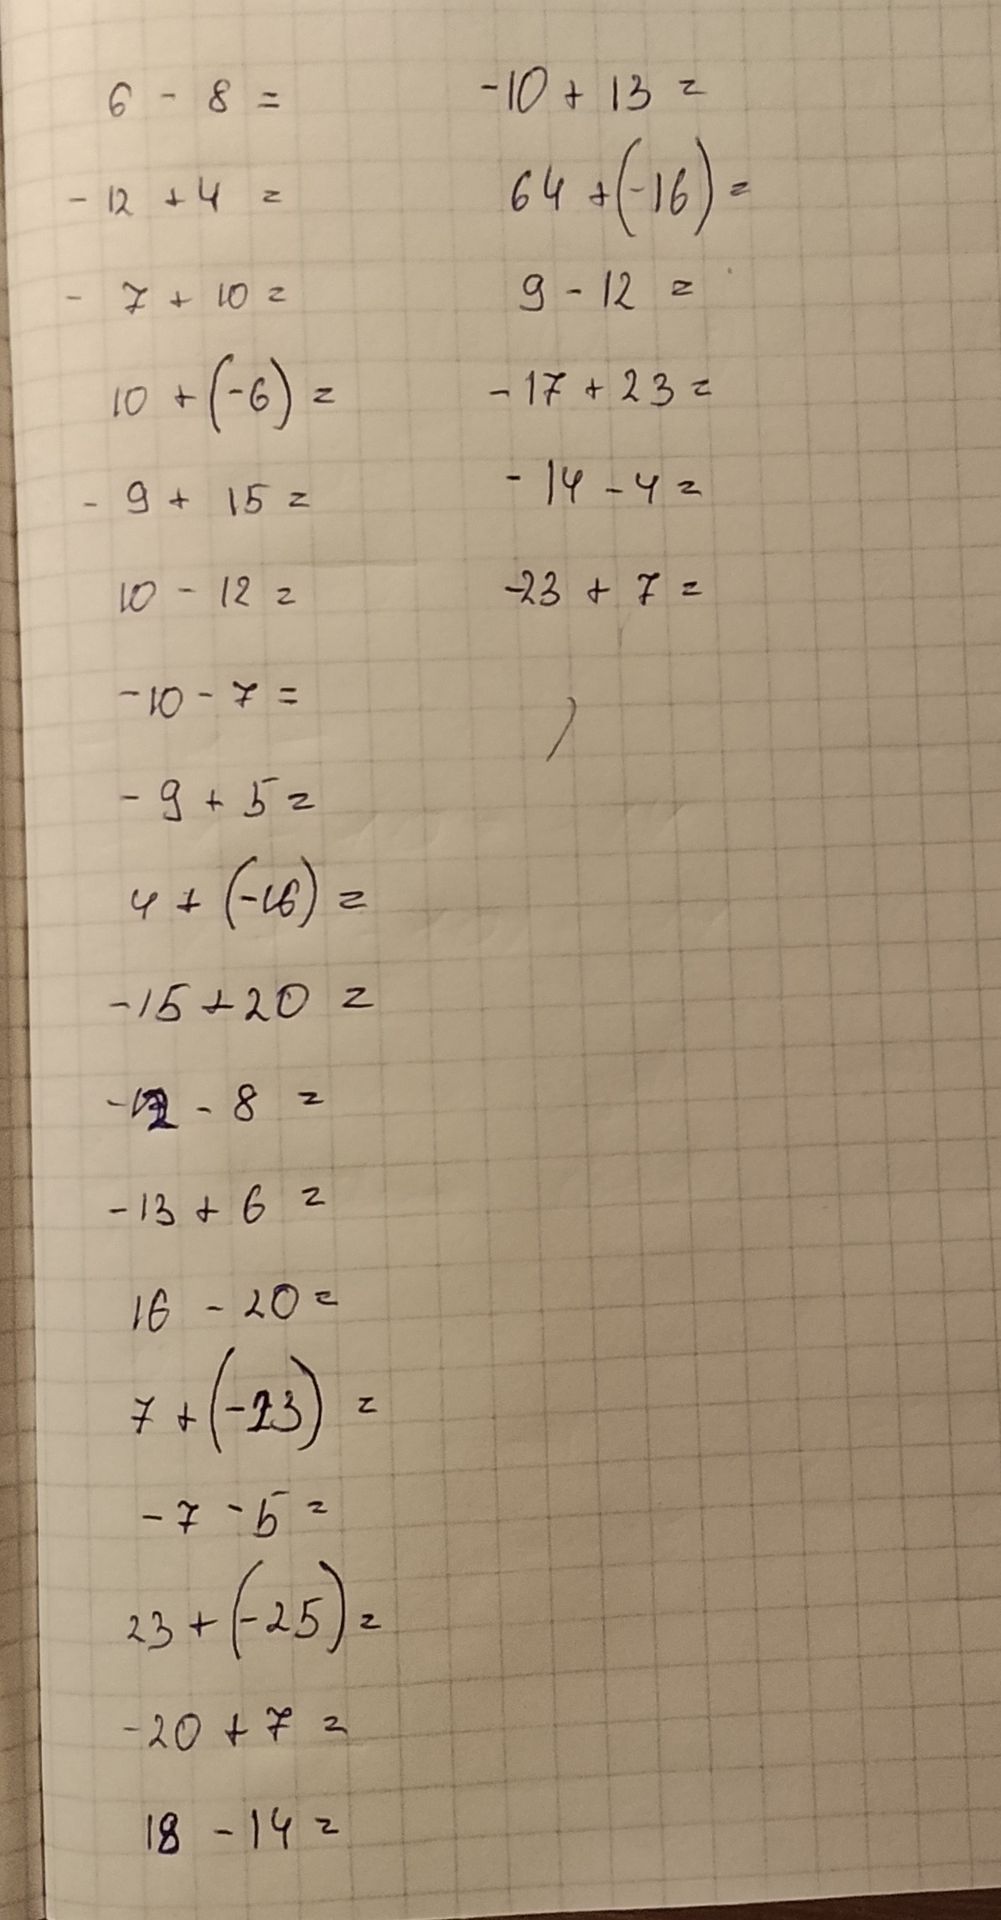 6 - 8 =
- 12 + 4 =
- 7 + 10 =
10 + (-6) =
- 9 + 15 =
10 - 12 =
-10 - 7 =
- 9 + 5 =
4 + (-16) =
-15 + 20 =
-12 - 8 =
-13 + 6 =
16 - 20 =
7 + (-23) =
-7 - 5 =
23 + (-25) =
-20 + 7 =
18 - 14 =
-10 + 13 =
64 + (-16) =
9 - 12 =
- 17 + 23 =
- 14 - 4 =
-23 + 7 =